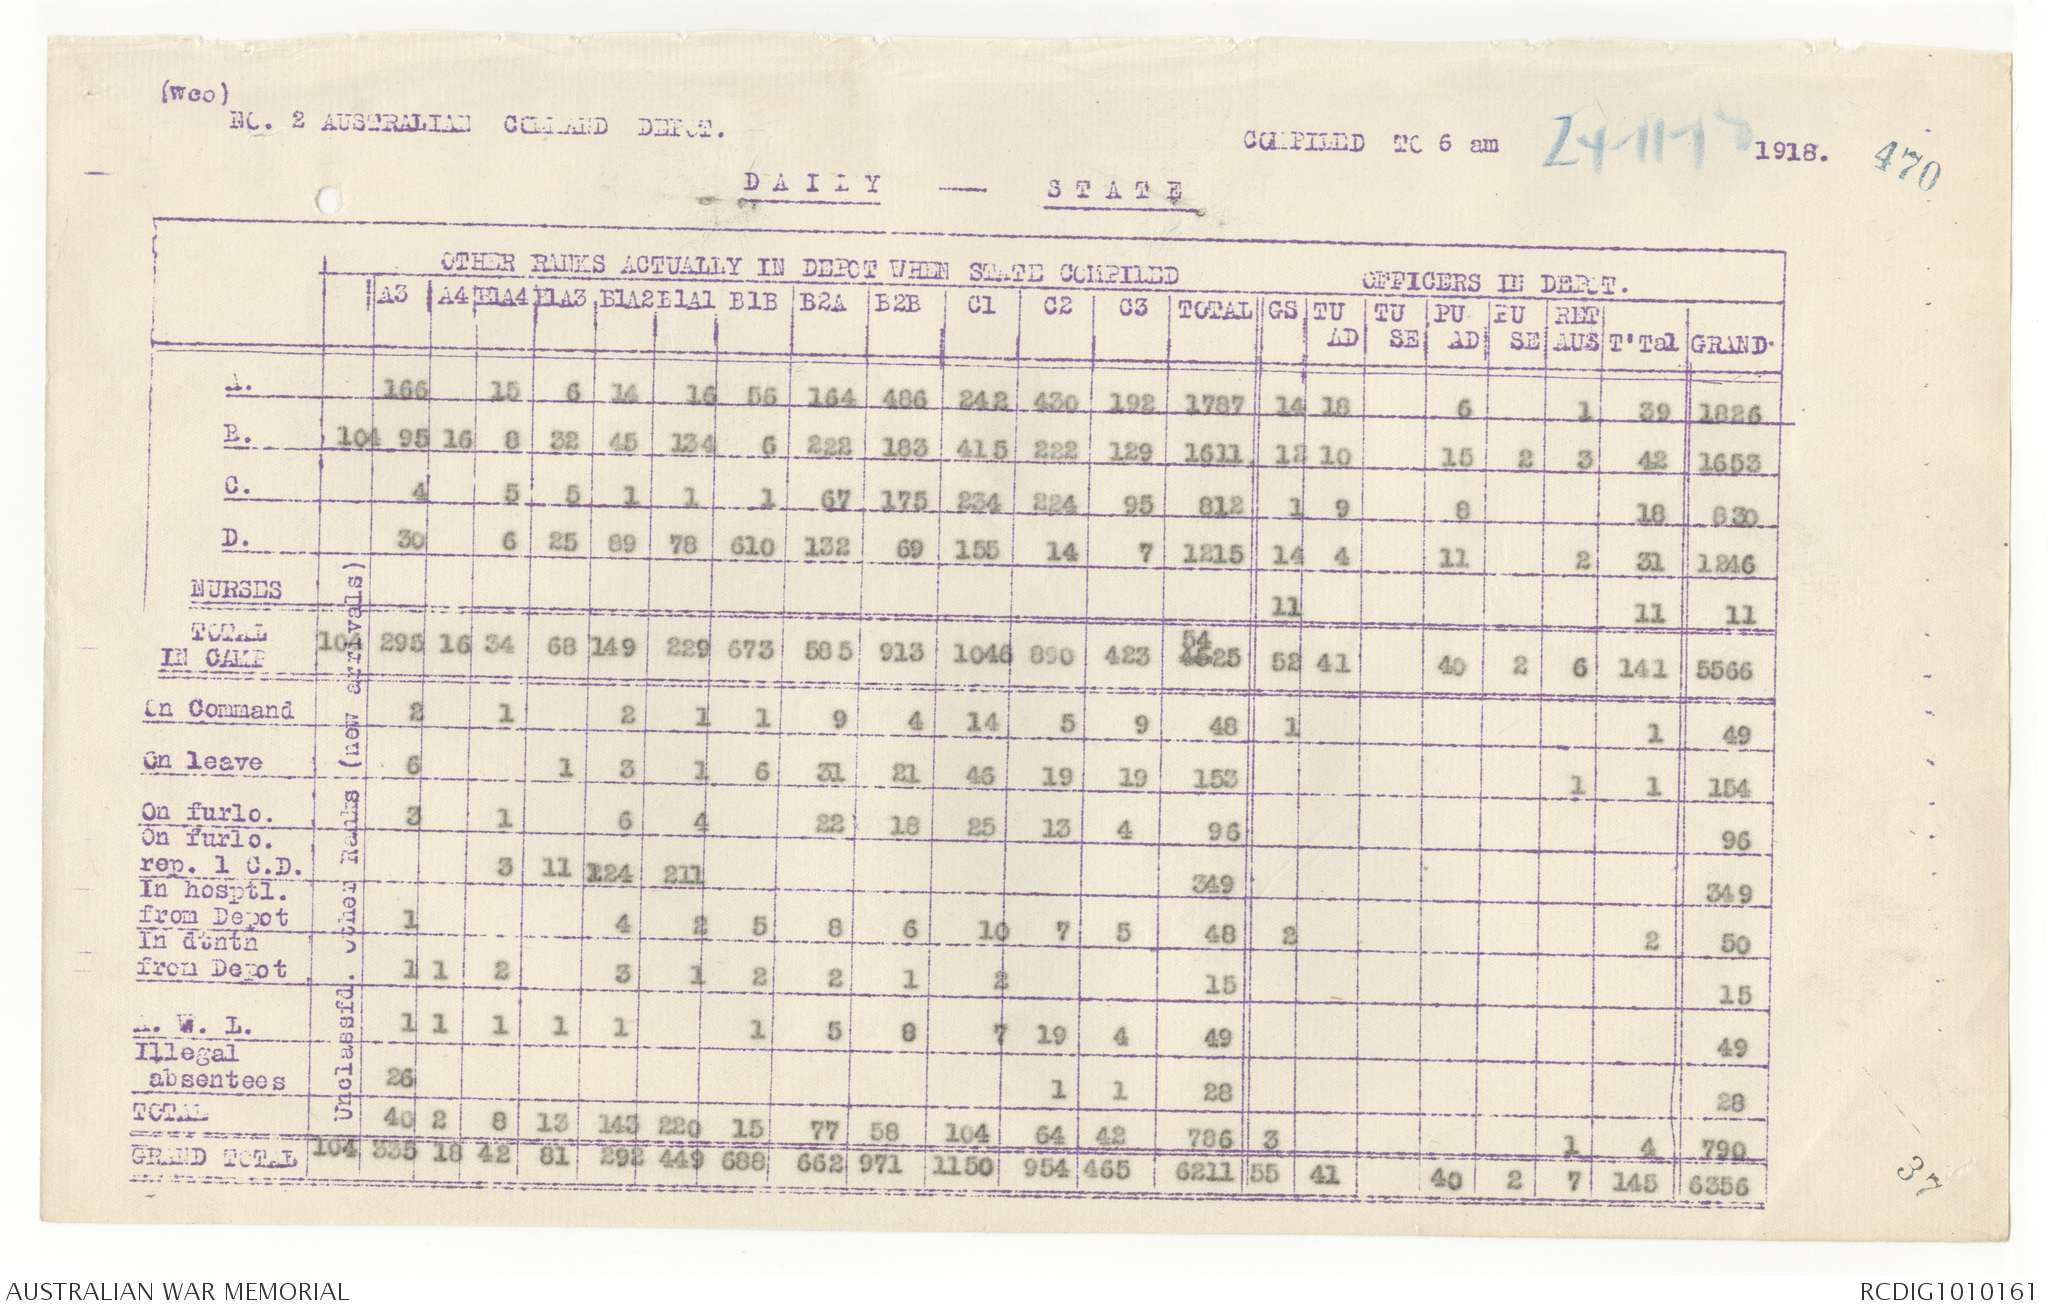 (wco)
NO. 2 AUSTRALIAN COMMAND DEPOT.
COMPILED TO 6 am 24-11-18 1918. 470
DAILY — STATE
OTHER RANKS ACTUALLY IN DEPOT WHEN STATE COMPILED OFFICERS IN DEPOT.
A3 A4 B1A4 B1A3 B1A2 B1A1 B1B B2A B2B C1 C2 C3 TOTAL GS TU AD TU SE PU AD PU SE RET AUS T'Tal GRAND
A. 166 15 6 14 16 56 164 486 242 430 192 1787 14 18 6 1 39 1826
B. 104 95 16 8 32 45 134 6 222 183 415 222 129 1611 12 10 15 2 3 42 1653
C. 4 5 5 1 1 1 67 175 234 224 95 812 1 9 8 18 830
D. 30 6 25 89 78 610 132 69 155 14 7 1215 14 4 11 2 31 1246
NURSES 11 11 11
TOTAL
IN CAMP 104 295 16 34 68 149 229 673 585 913 1046 890 423 5425 52 41 40 2 6 141 5566
On Command 2 1 2 1 1 9 4 14 5 9 48 1 1 49
On leave 6 1 3 1 6 31 21 46 19 19 153 1 1 154
On furlo. 3 1 6 4 22 18 25 13 4 96 96
On furlo.
rep. 1 C.D. 3 11 124 211 349 349
In hosptl.
from Depot 1 4 2 5 8 6 10 7 5 48 2 2 50
In dtntn
from Depot 1 1 2 3 1 2 2 1 2 15 15
A. W. L. 1 1 1 1 1 1 5 8 7 19 4 49 49
Illegal
absentees 26 1 1 28 28
TOTAL 40 2 8 13 143 220 15 77 58 104 64 42 786 3 1 4 790
GRAND TOTAL 104 335 18 42 81 292 449 688 662 971 1150 954 465 6211 55 41 40 2 7 145 6356
Unclassfd. Other Ranks (new arrivals)
37
AUSTRALIAN WAR MEMORIAL RCDIG1010161